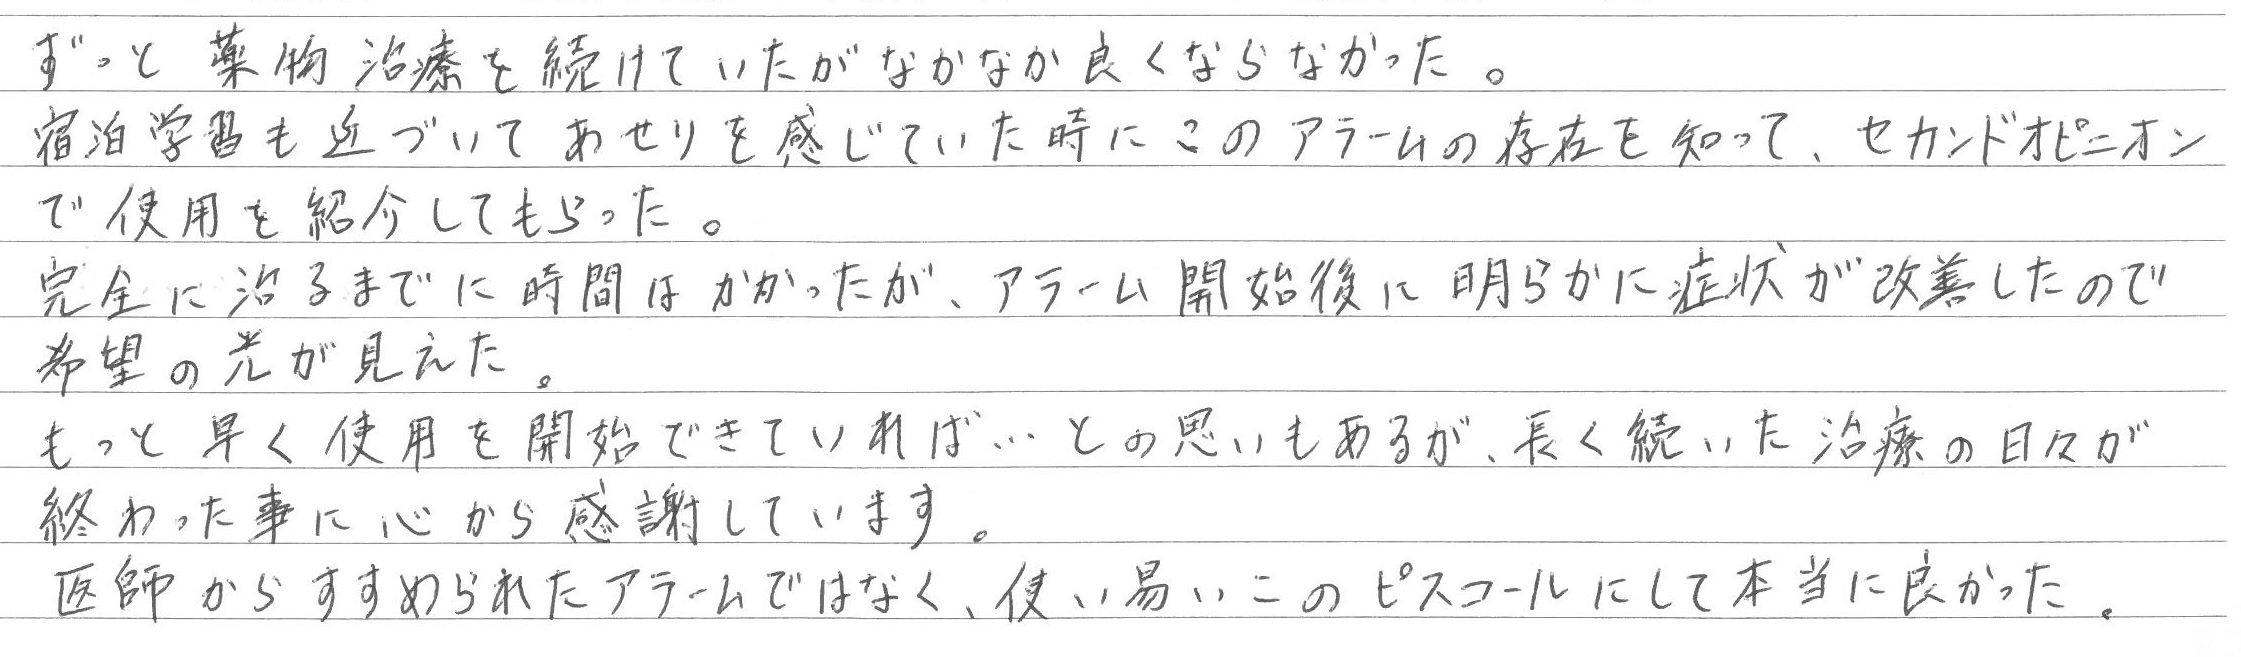 ずっと薬物治療を続けていたがなかなか良くならなかった。
宿泊学習も近づいてあせりを感じていた時にこのアラームの存在を知って、セカンドオピニオン
で使用を紹介してもらった。
完全に治るまでに時間はかかったが、アラーム開始後に明らかに症状が改善したので
希望の光が見えた。
もっと早く使用を開始できていれば…との思いもあるが、長く続いた治療の日々が
終わった事に心から感謝しています。
医師からすすめられたアラームではなく、使い易いこのピスコールにして本当に良かった。